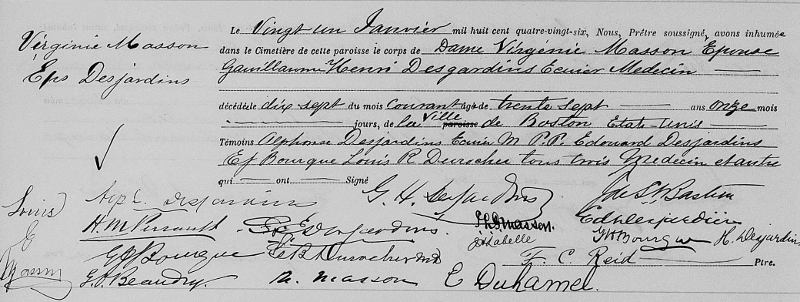 Virginie Masson
Eps Desjardins
Le Vingt un Janvier mil huit cent quatre-vingt-six, Nous, Prêtre soussigné, avons inhumé
dans le Cimetière de cette paroisse le corps de Dame Virginie Masson Epouse
Henri Desjardins Ecuier Medecin
décédée le dix sept du mois courant âgée de trente sept ans onze mois
jours, de la Ville paroisse de Boston Etats-Unis
Témoins Alphonse Desjardins Ecuier M.P.P. Edouard Desjardins
Ef Bourque Louis R Durocher tous trois Medecin et autre
qui ont Signé
Alph. Desjardins G. H. Desjardins
Louis H. M. Perrault Desjardins Masson. Ed Desjardins
G Bourque Durocher Labelle Bourque H. Desjardins
Masson Beaudry Masson E Duhamel F. C. Reid Ptre.